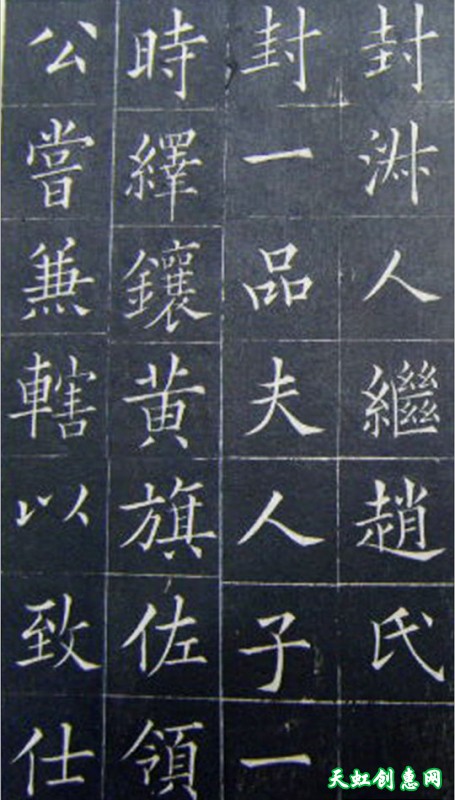 封淑人繼趙氏
封一品夫人子一
時繹鑲黄旗佐領
公嘗兼轄以致仕
天虹创惠网